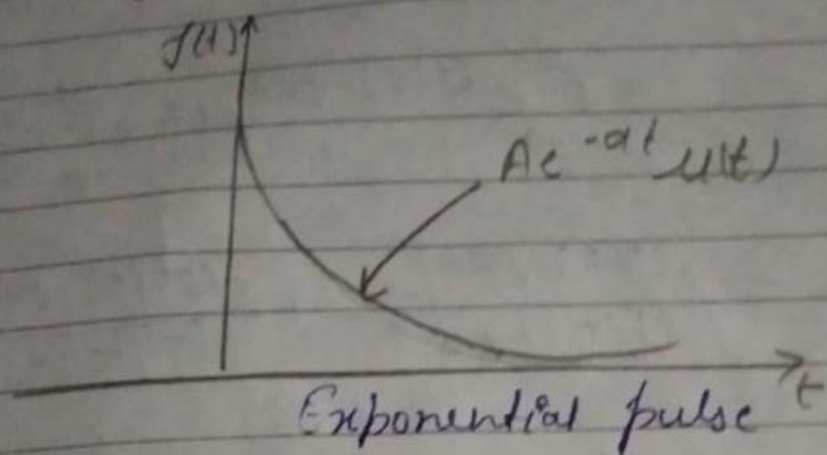 f(t)
Ae^-at u(t)
t
Exponential pulse